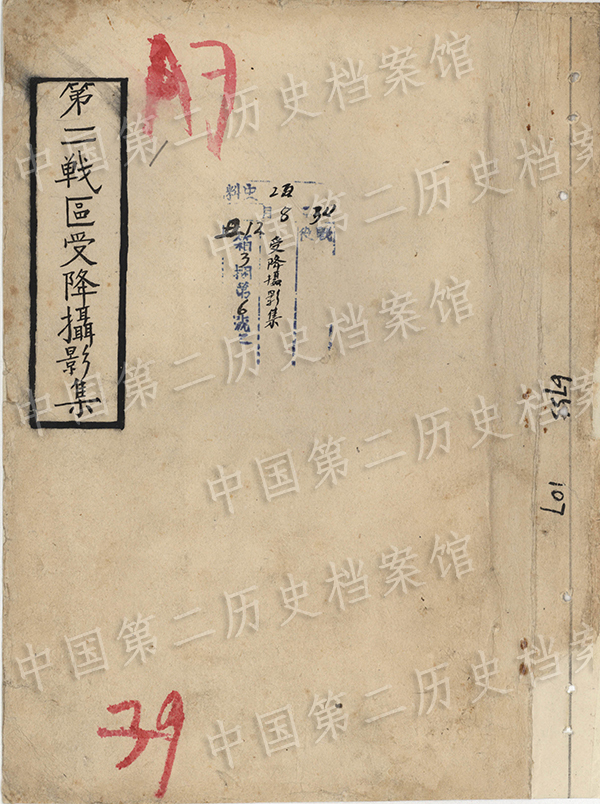 A7
第二戰區受降攝影集
史料
8
34
12
箱3
第6號之
受降攝影集
6755
107
39
中国第二历史档案馆
中国第二历史档案馆
中国第二历史档案馆
中国第二历史档案馆
中国第二历史档案馆
中国第二历史档案馆